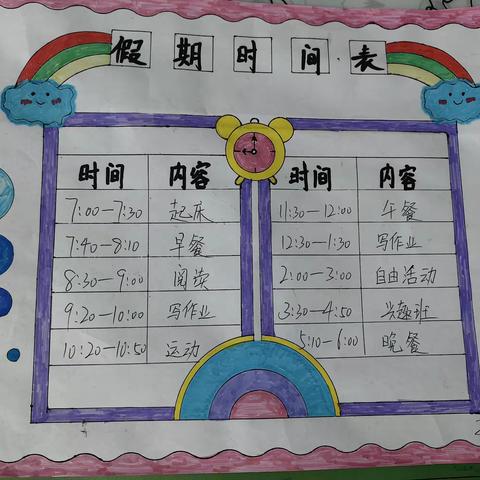 假期时间表
时间 内容
7:00—7:30 起床
7:40—8:10 早餐
8:30—9:00 阅读
9:20—10:00 写作业
10:20—10:50 运动
时间 内容
11:30—12:00 午餐
12:30—1:30 写作业
2:00—3:00 自由活动
3:30—4:50 兴趣班
5:10—6:00 晚餐